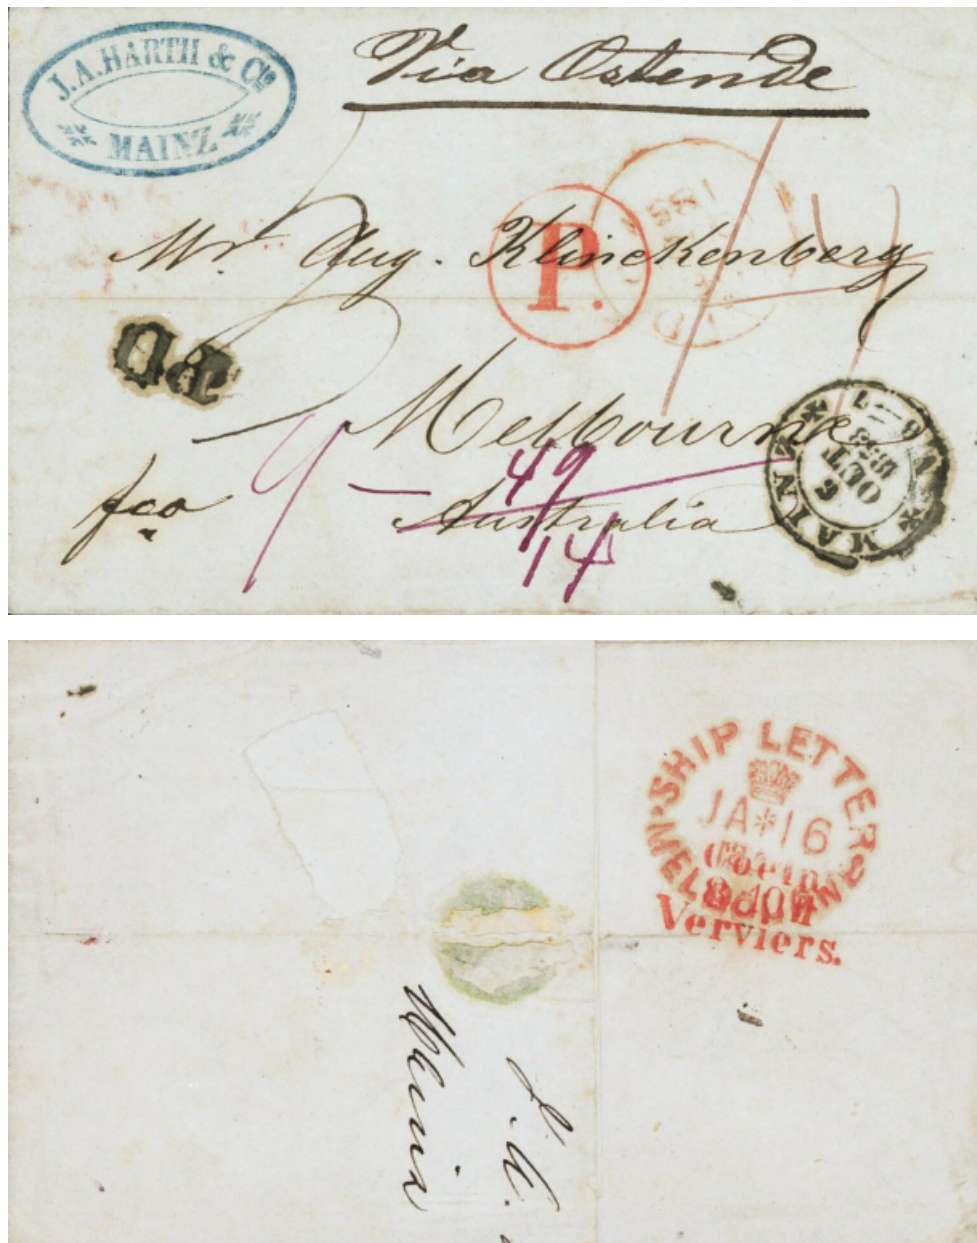 J.A.HARTH & Cie
MAINZ
Via Ostende
P.
Mr. Aug. Klinckenberg
PD
Melbourne
fco
Australia
49
14
MAINZ
OCT
1853
SHIP LETTER
JA*16
MELBOURNE
Coeln
Verviers.
J. A.
Mainz